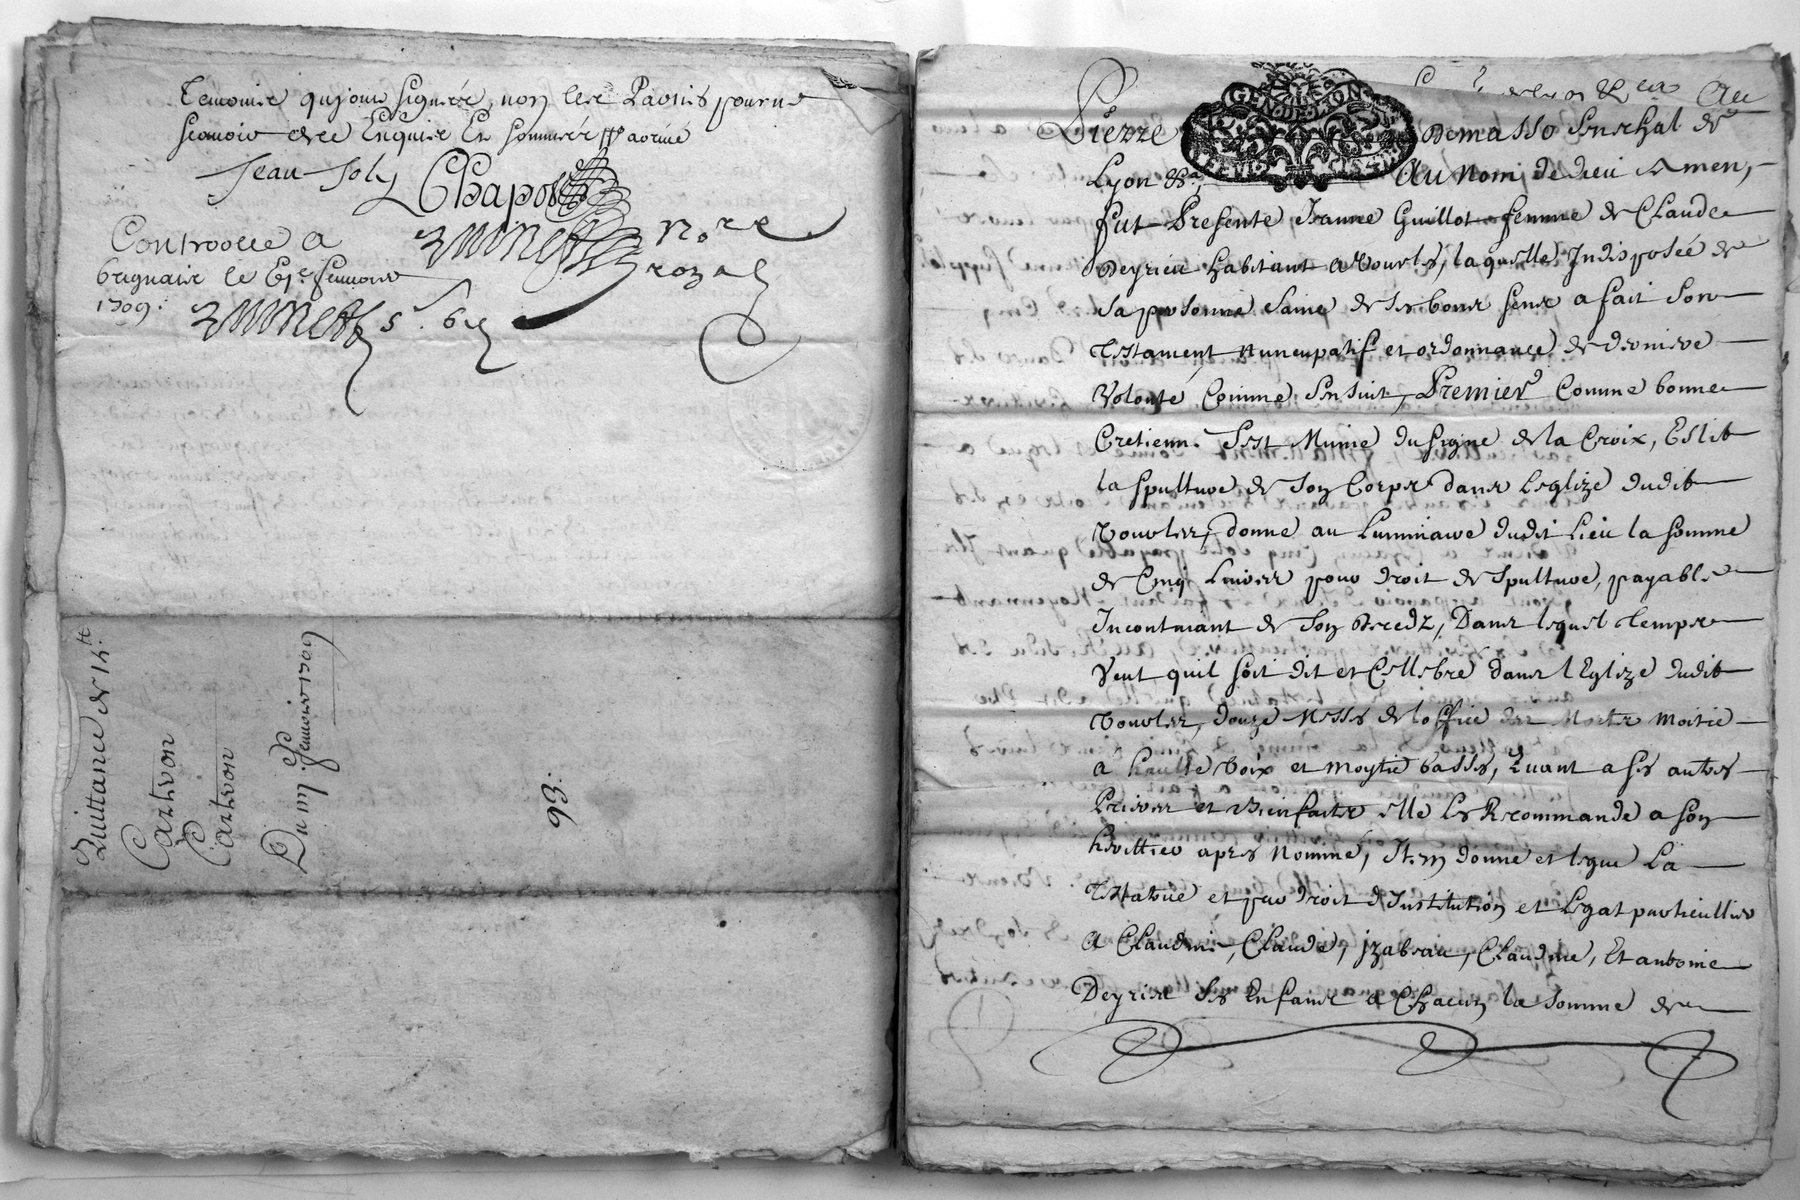 Temoins qui ont signéz, non lesd. Parties pour ne
scavoir de ce Enquis Et sommées
Jean Joly Chapo
No.re
royal
Controolle a
Brignais le Janvier
1709.
Quittance de 15 tt
Cartvon
Cartvon
Du III.e Janvier 1709
93.
Pierre Demasso Senechal de
GEN DE LYON
Lyon &a. Au Nom de dieu Amen,
fut Presente Jeanne Guillot femme de Claude
Deyrieu habitant a Vourles, laquelle Indisposée de
sa personne Saine de ses bons sens a fait Son
Testament nuncupatif et ordonnance de derniere
Volonté Comme Sensuit, Premier Comme bonne
Cretienn. Sest Munie du signe de la Croix, Eslit
la spulture de Son Corps dans Leglize dudit
Vourles, donne au Luminaire dudit Lieu la somme
de Cinq Livres pour droit de spulture, payable
Incontinant de Son Decedz, Dans lequel temps
Veut quil soit dit et Cellebré dans lEglize dudit
Vourles, douze Messes de loffice des Morts moitie
à haulte Voix et moytie basses, Quant a ses autres
Prieres et Bienfaits elle les Recommande a son
heritier apres nommé, Item donne et legue La
Testatrice et par droit dInstitution et Legat particullier
A Claudine, Claude, jzabeau, Claudine, Et antoine
Deyrieu ses Enfants a Chacun la somme de